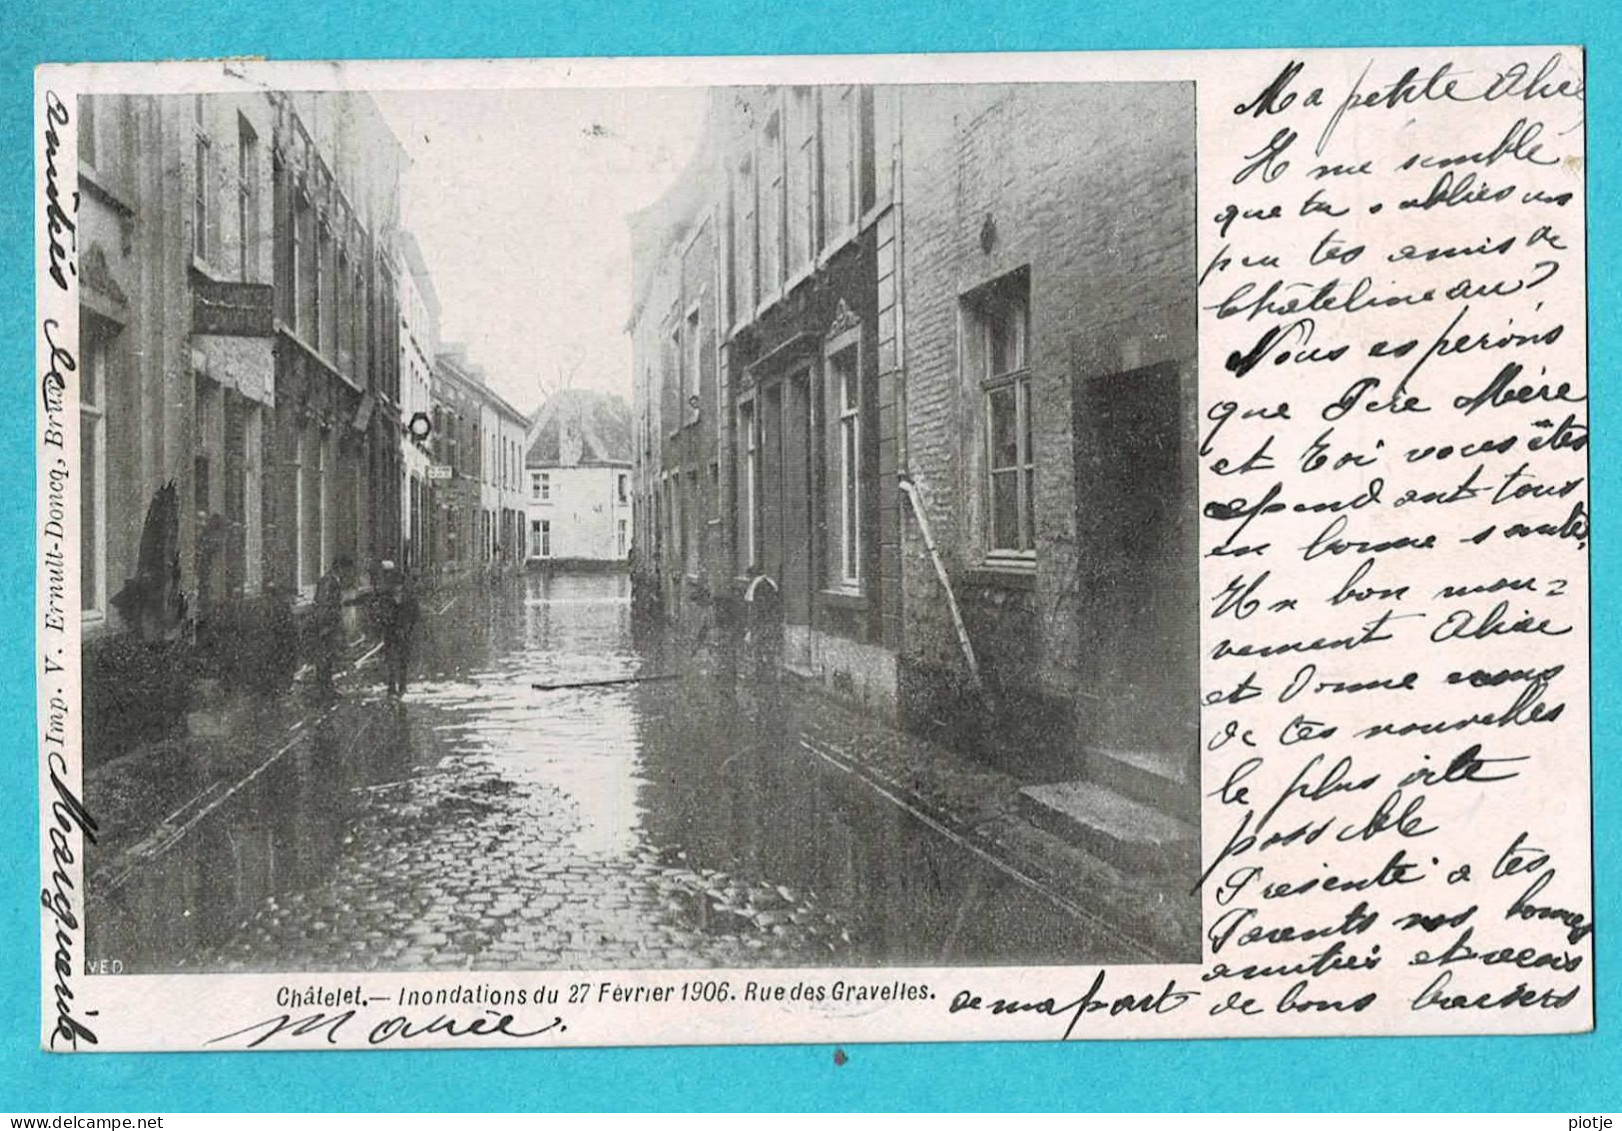 Ma petite Alice
Il me semble
que tu oublies un
peu tes amis de
Châtelineau?
Nous espérons
que Père Mère
et Toi vous êtes
cependant tous
en bonne santé.
Un bon mou=
vement Alice
et donne nous
de tes nouvelles
le plus vite
possible
Présente à tes
Parents nos bonnes
amitiés et reçois
de bons baisers
de ma part
Marie.
amitiés de
Marguerite
Imp. V. Ernult-Doncq, Brux.
VED
Châtelet.— Inondations du 27 Février 1906. Rue des Gravelles.
piotje